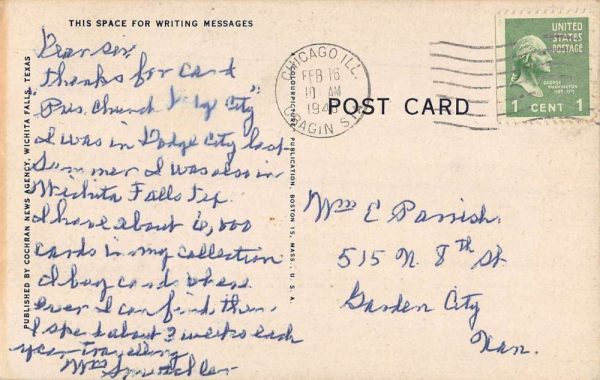 THIS SPACE FOR WRITING MESSAGES
Dear Sir
Thanks for card
"Pres. Church Dodge City"
I was in Dodge City last
Summer I was also in
Wichita Falls Tex.
I have about 6,000
cards in my collection
I buy cards where
ever I can find them
I spend about 3 weeks each
year travelling
PUBLISHED BY COCHRAN NEWS AGENCY, WICHITA FALLS, TEXAS
COLOURPICTURE PUBLICATION, BOSTON 15, MASS., U.S.A.
CHICAGO, ILL.
FEB 16
10 AM
CRAGIN
POST CARD
UNITED
STATES
POSTAGE
GEORGE
WASHINGTON
1 CENT 1
E Parrish
515 N. 8th St
Garden City
Kan.